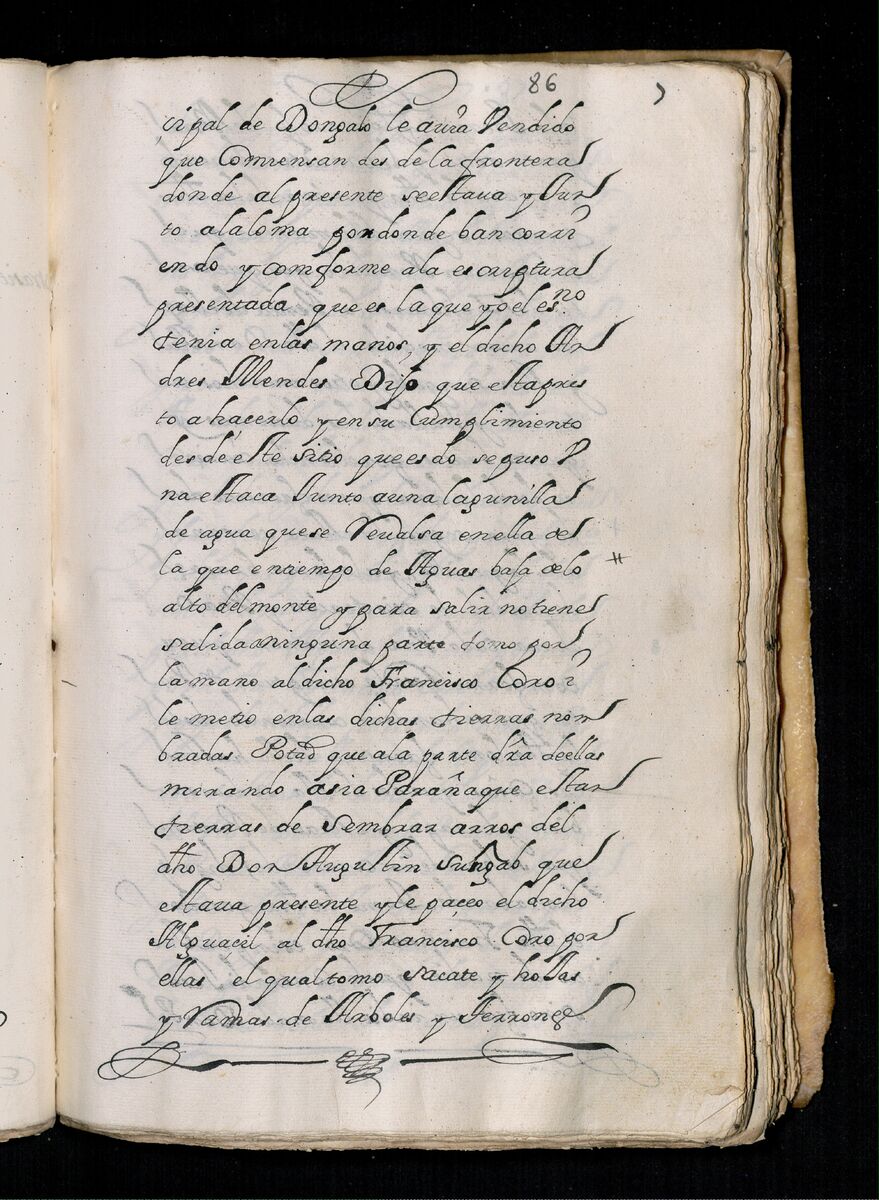 86
cipal de Dongalo le auia Vendido
que Comiensan des de la frontera
donde al presente se estaua y Jun
to alaloma pondonde ban corri
endo y comforme ala escriptura
presentada que es la que yo el es.no
tenia enlas manos, y el dicho An
dres Mendes Dijo que estapres
to a hacerlo y en su Cumplimiento
desde este sitio que es do se puso V
na estaca Junto auna lagunilla
de agua que se Reualsa enella de
la que entiempo de Aguas baja delo
alto del monte y para salir no tiene
salida aninguna parte tomo por
la mano al dicho Francisco Coro i
le metio enlas dichas tierras nom
bradas Potad que ala parte dra. deellas
mirando asia Parañaque estan
tierras de Sembrar arros del
dho Don Augustin Sungab que
estaua presente y le paceo el dicho
Alguacil al dho Francisco Coro por
ellas el qual tomo sacate y hojas
y Ramas de Arboles y Terrones